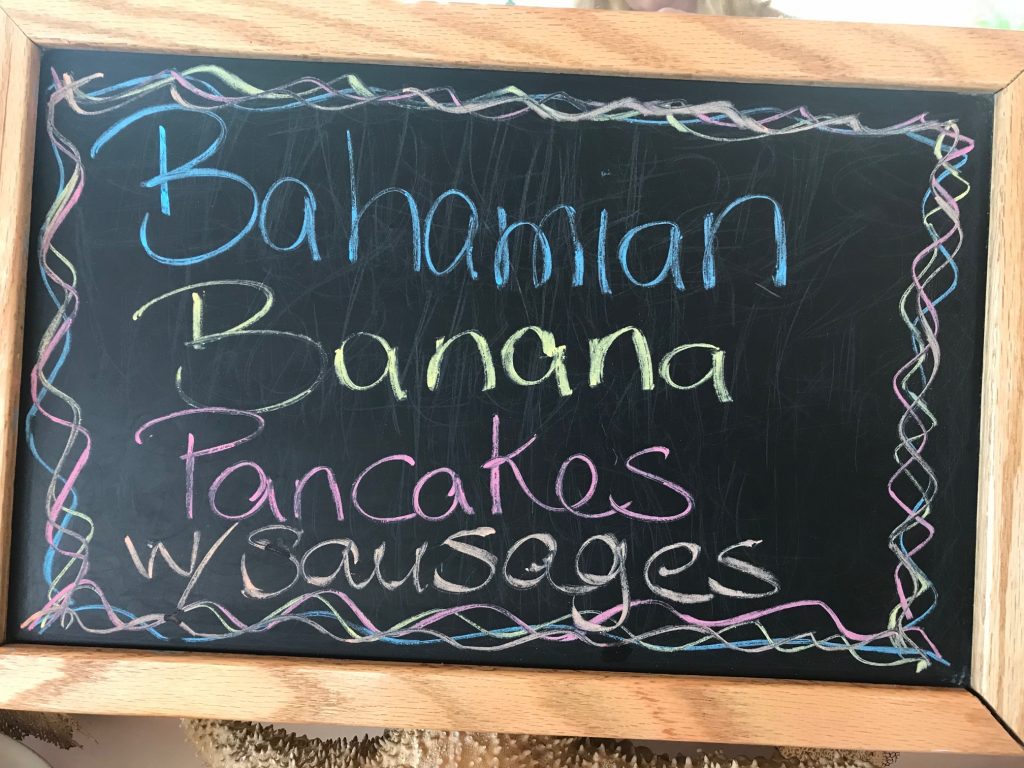 Bahamian
Banana
Pancakes
w/sausages